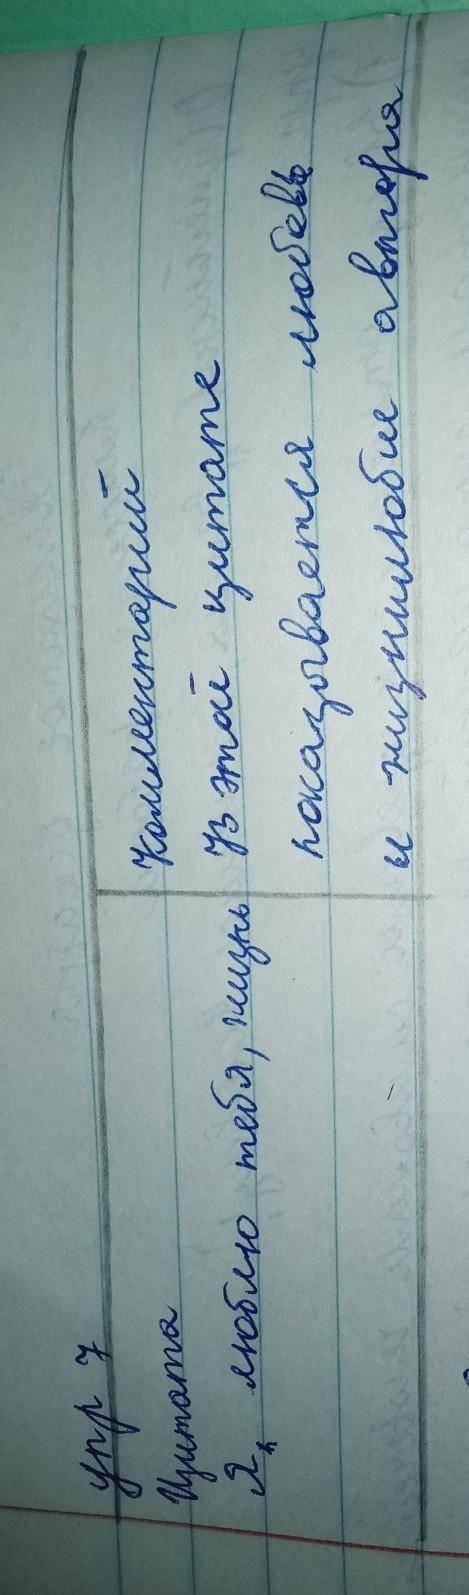 упр 7
Цитата
Я, люблю тебя, жизнь
Комментарий
Из этой цитате
показывается любовь
и жизнилюбие автора